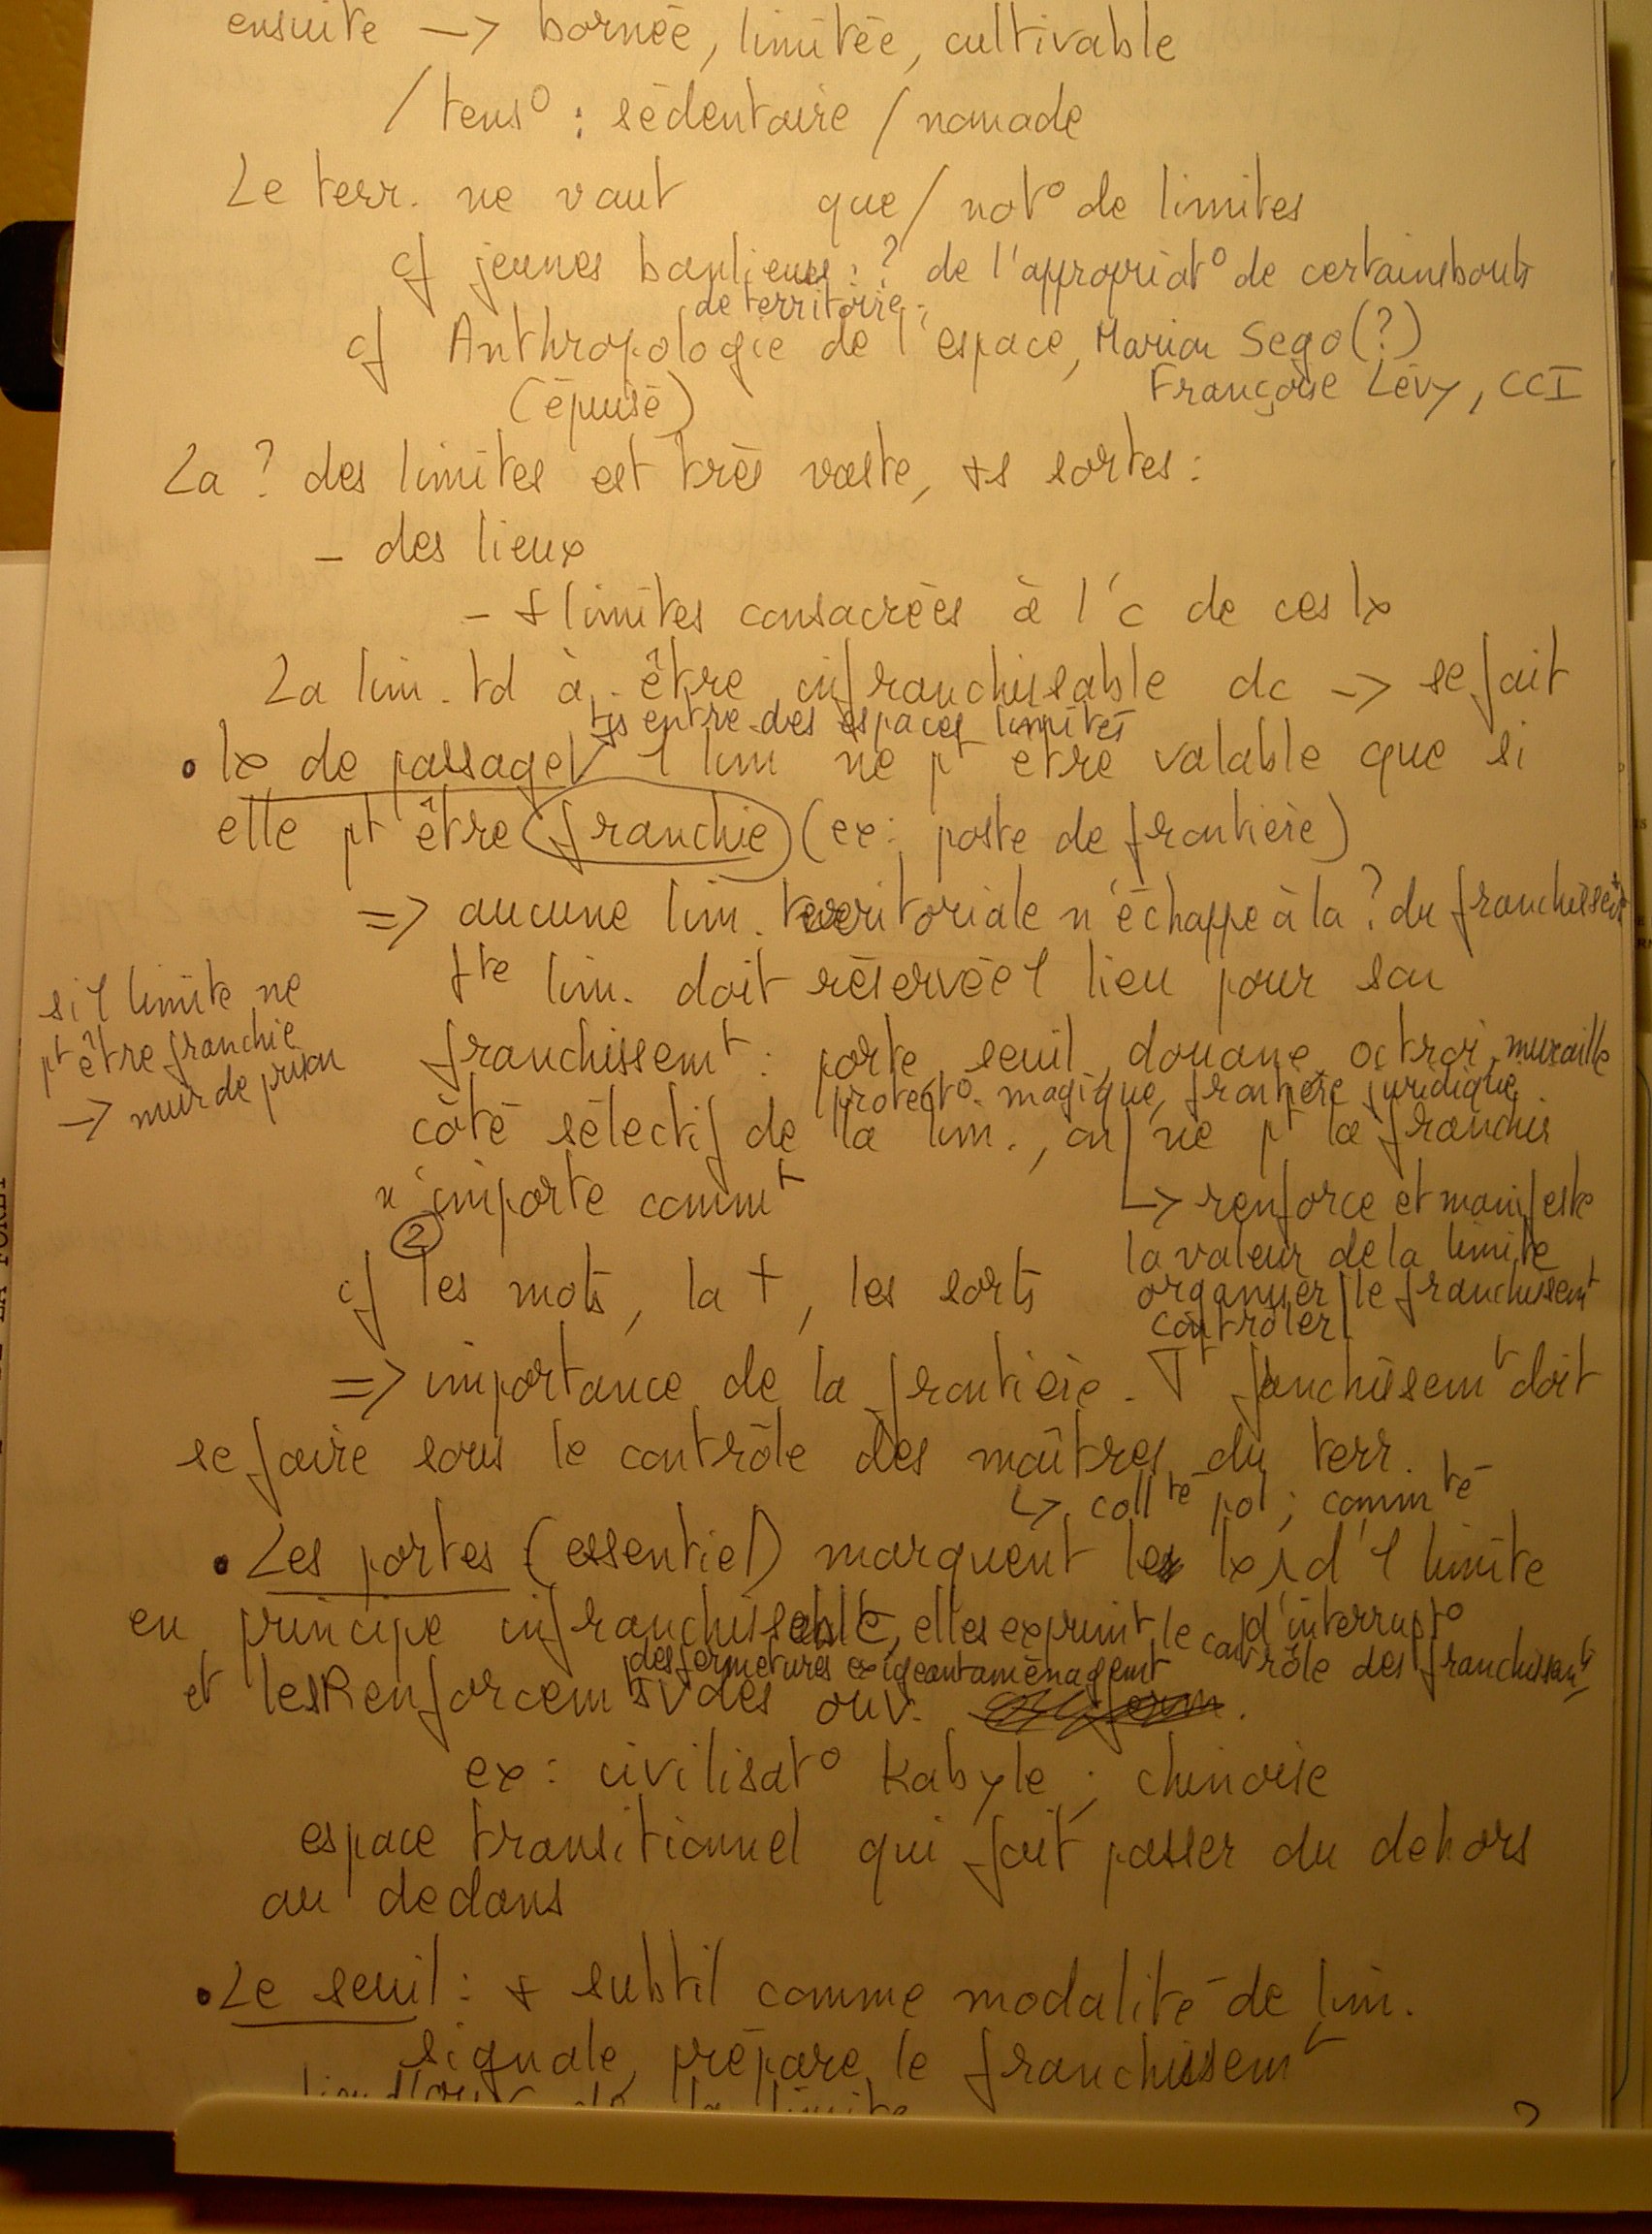 ensuite -> bornée, limitée, cultivable
/ tens° : sédentaire / nomade
Le terr. ne vaut que / not° de limites
cf jeunes banlieues : ? de l'appropriat° de certains bouts
de territoire.
cf Anthropologie de l'espace, Marion Sego (?)
(épuisé) Françoise Lévy, CCI
La ? des limites est très vaste, +s sortes :
- des lieux
- + limites consacrées à l'c de ces lx
La lim. td à être infranchissable dc -> se fait
ts entre des espaces limités
• lx de passage 1 lim ne pt être valable que si
elle pt être franchie (ex: poste de frontière)
=> aucune lim. territoriale n'échappe à la ? du franchissemt
tte lim. doit réservée 1 lieu pour son
si 1 limite ne
pt être franchie
-> mur de prison
franchissemt : porte, seuil, douane, octroi, muraille
protect° magique, frontière juridique
côté sélectif de la lim., on ne pt la franchir
n'importe commt
-> renforce et manifeste
la valeur de la limite
organiser / le franchissemt
contrôler
②
cf les mots, la +, les sorts
=> importance de la frontière. Tt franchissemt doit
se faire sous le contrôle des maîtres du terr.
-> collté pol ; commté
• Les portes (essentiel) marquent les lx d'1 limite
d'interrupt°
en principe infranchissable, elles exprimt le contrôle des franchissemts
des fermetures exigeant aménagemt
et les Renforcemts des ouv.
ex : civilisat° Kabyle ; chinoise
espace transitionnel qui fait passer du dehors
au dedans
• Le seuil : + subtil comme modalité de lim.
signale, prépare le franchissemt
de la limite